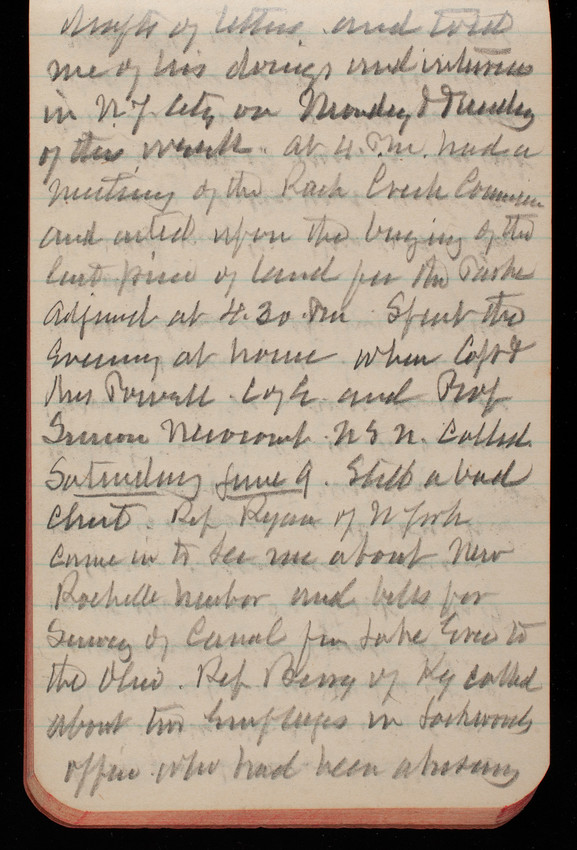 drafts of letters and told
me of his doings and interviews
in N.Y. City on Monday & Tuesday
of this week. At 4 P.M. had a
meeting of the Rock Creek Commission
and acted upon the buying of the
last piece of land for the Park
Adjourned at 4.30 PM Spent the
Evening at home when Capt &
Mrs Powell. Coyle and Prof
Simon Newcomb U.S.N. Called
Saturday June 9. Still a bad
Chest. Rep Ryan of N York
came in to see me about New
Rochelle harbor and bills for
Survey of Canal from Lake Erie to
the Ohio. Rep Berry of Ky called
about two Employees in Lockwoods
office who had been abusing